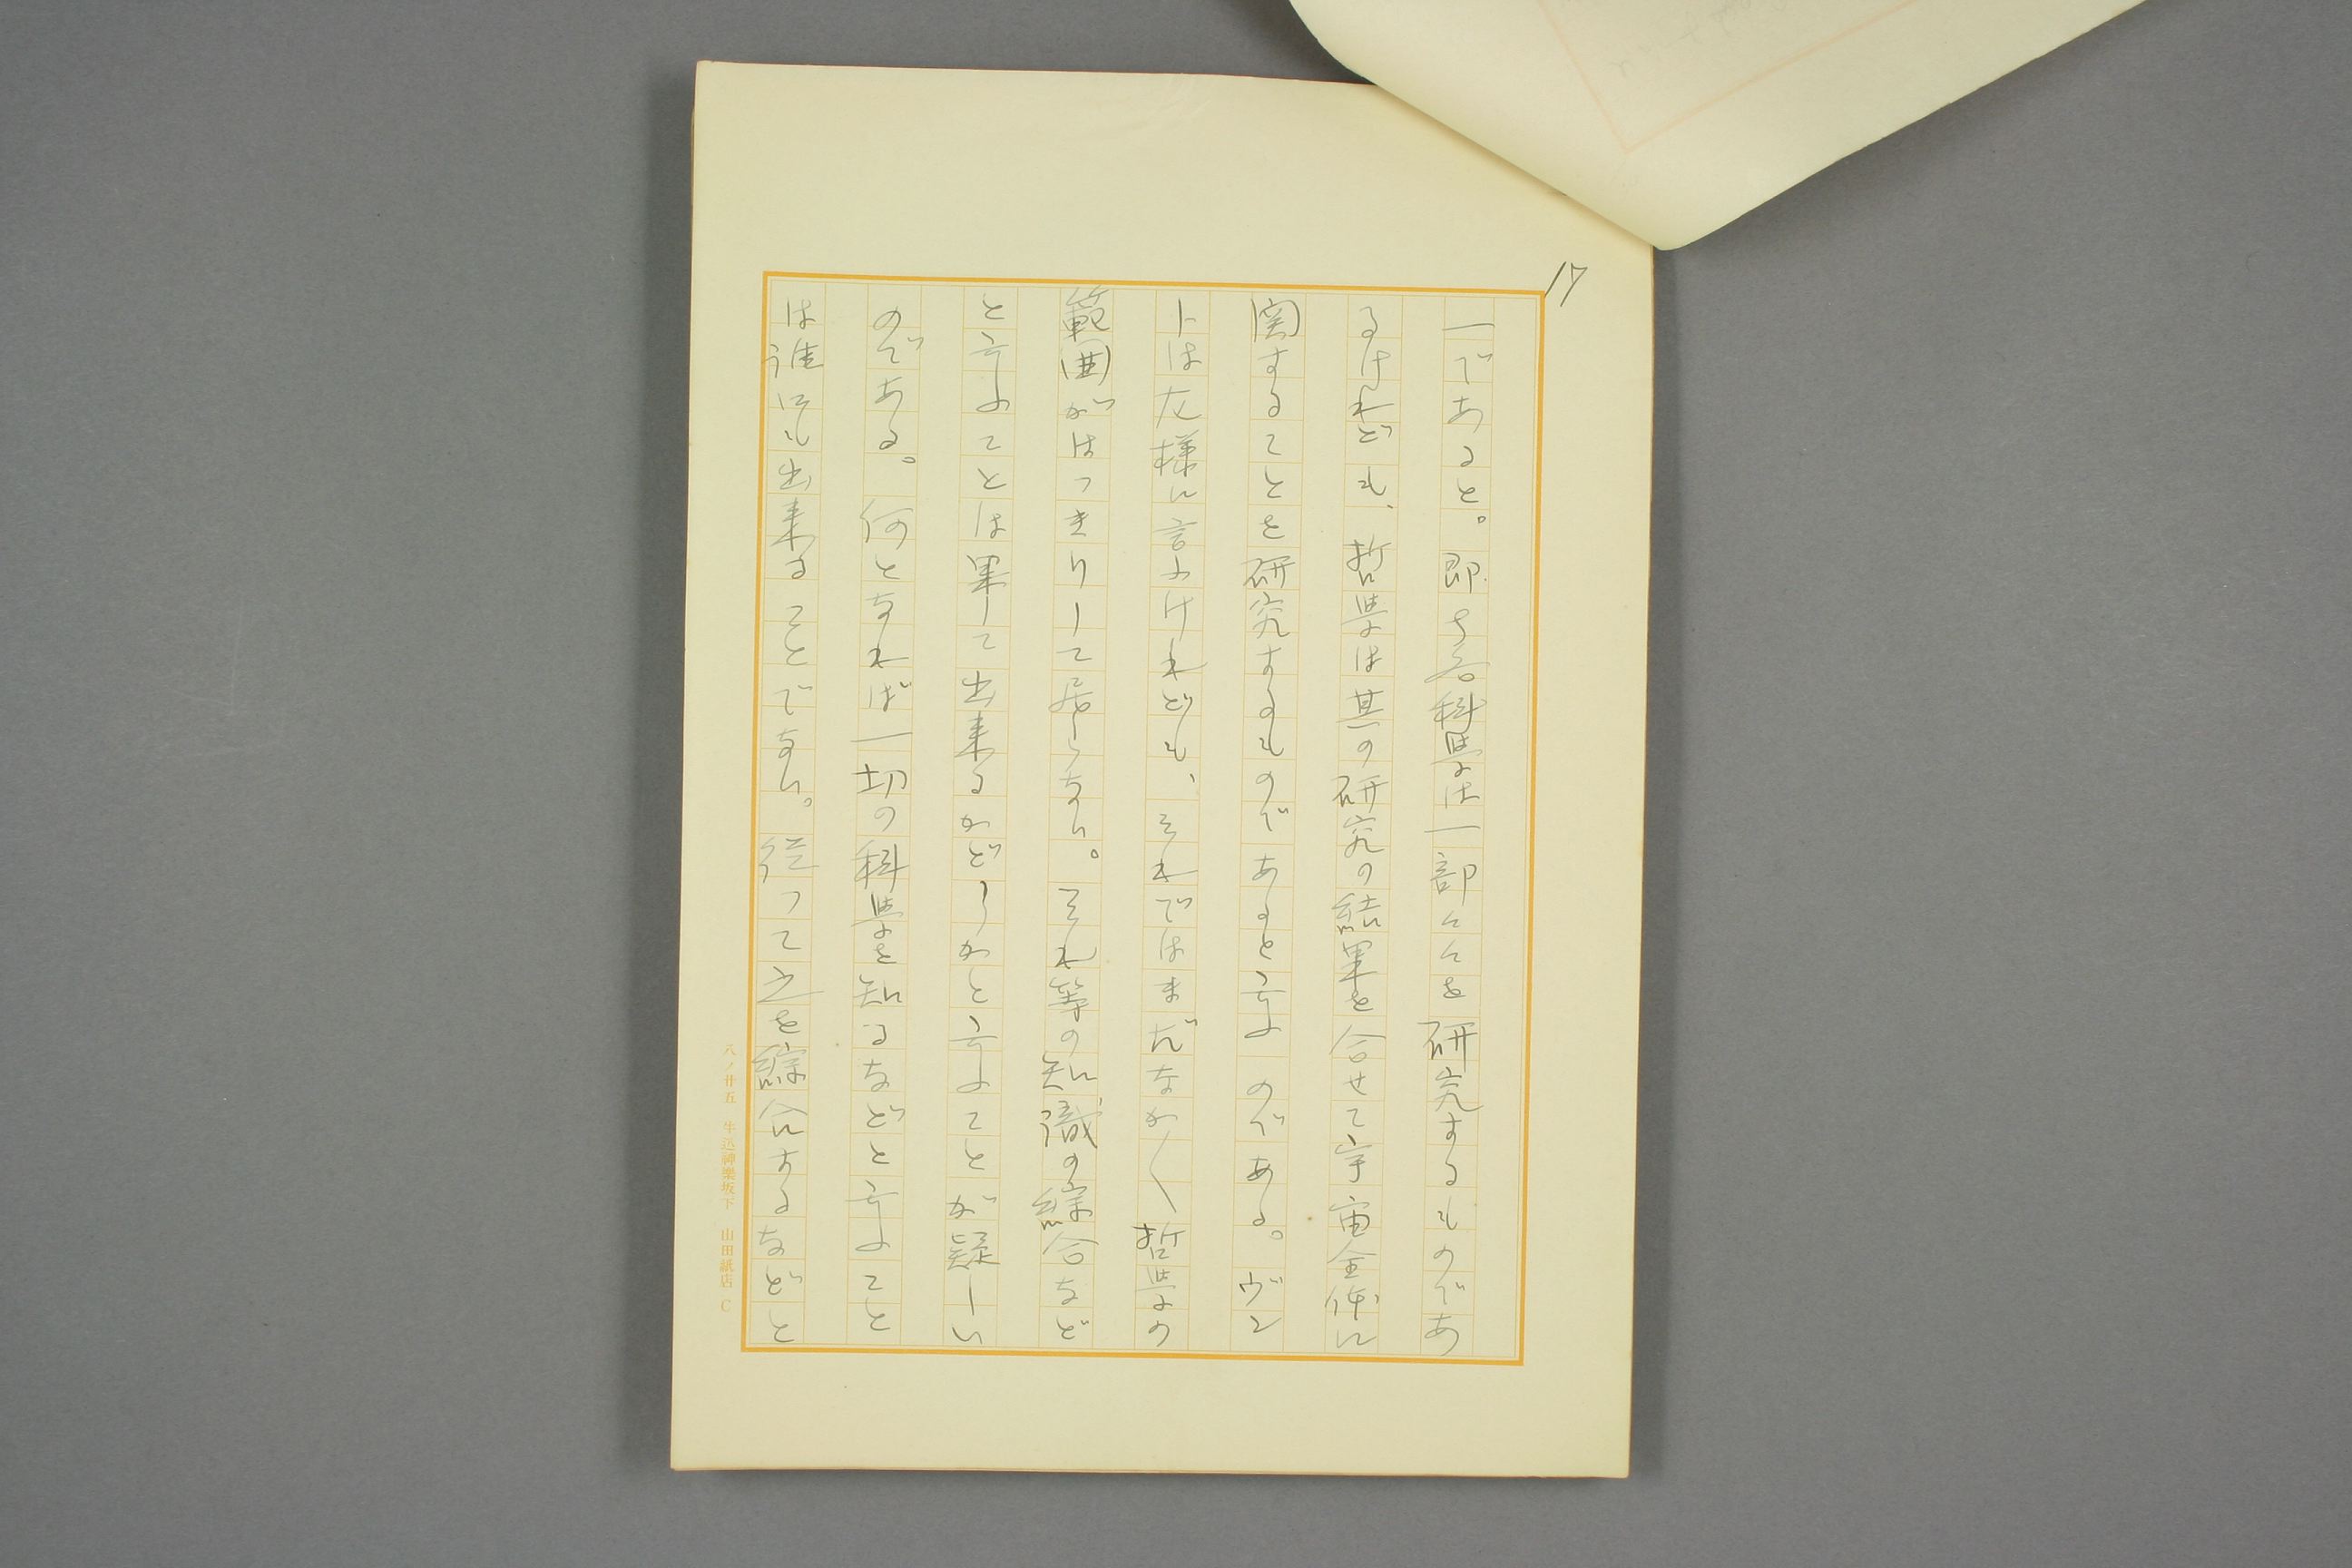 17
一であると。即ち各科学は一部々々を研究するものであ
るけれども、哲学は其の研究の結果を合せて宇宙全体に
関することを研究するものであると云ふのである。ヴン
トは左様に言ふけれども、それではまだなか〱哲学の
範囲がはっきりして居らない。それ等の知識の綜合など
と云ふことは果して出来るかどうかと云ふことが疑しい
のである。何となれば一切の科学を知るなどと云ふこと
は誰にも出来ることでない。従って之を綜合するなどと
八ノ廿五 牛込神樂坂下 山田紙店 C